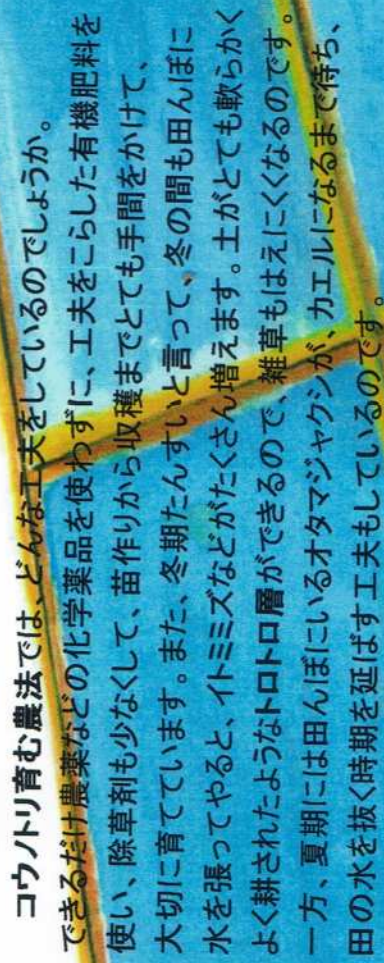 コウノトリ育む農法では、どんな工夫をしているのでしょうか。
できるだけ農薬などの化学薬品を使わずに、工夫をこらした有機肥料を
使い、除草剤も少なくして、苗作りから収穫までとても手間をかけて、
大切に育てています。また、冬期たんすいと言って、冬の間も田んぼに
水を張ってやると、イトミミズなどがたくさん増えます。土がとても軟らかく
よく耕されたようなトロトロ層ができるので、雑草もはえにくくなるのです。
一方、夏期には田んぼにいるオタマジャクシが、カエルになるまで待ち、
田の水を抜く時期を延ばす工夫もしているのです。